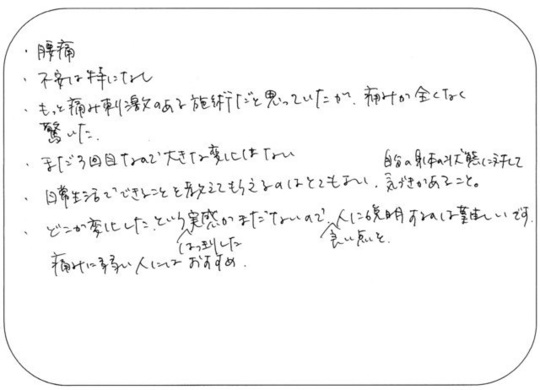 ・腰痛
・不安は特になし
・もっと痛み刺激のある施術だと思っていたが、痛みが全くなく
驚いた。
・まだ3回目なので大きな変化はない
・日常生活でできることを教えてもらえるのはとてもよい。自分の身体の状態に対して
気づきがあること。
・どこか変化した、という実感がまだないので、人に説明するのは難しいです。
はっきりした
良い点を
痛みに弱い人にはおすすめ。